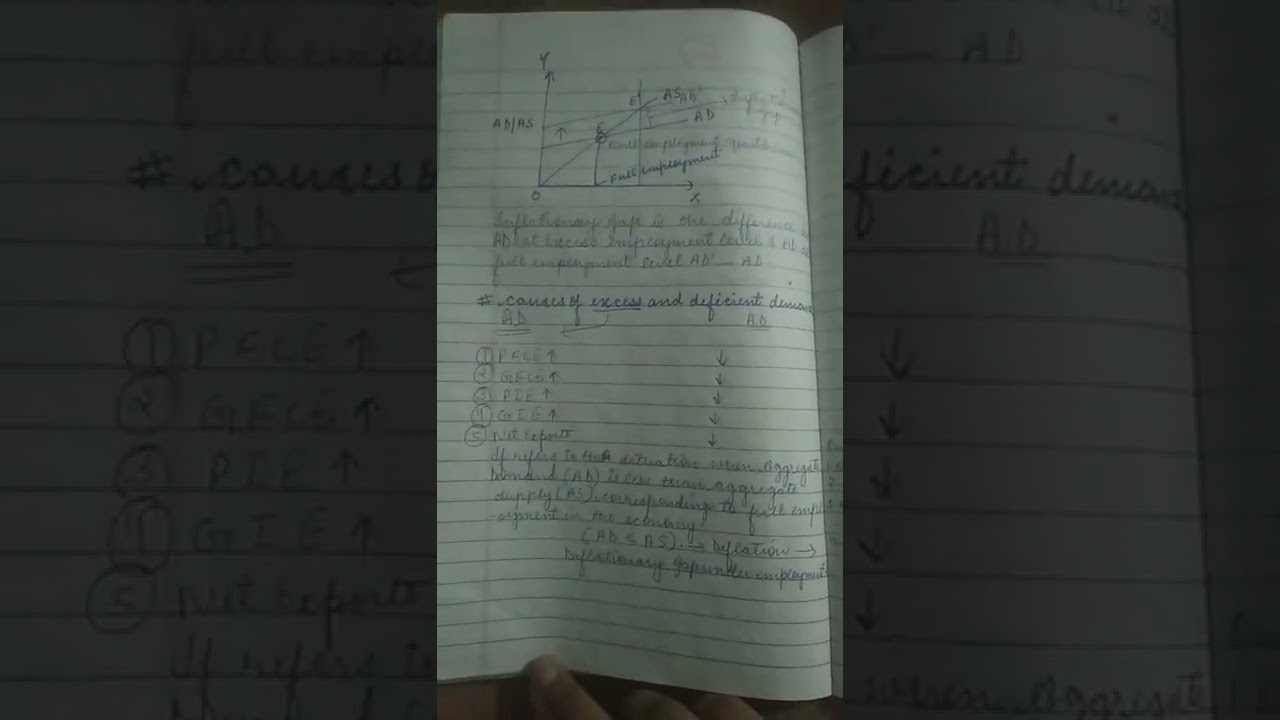 Y
E' AS AD'
AD/AS ↑ E AD
Full employment
O X
Inflationary gap is the difference
AD at Excess employment level & AD
full employment level AD' — AD
# causes of excess and deficient deman
AD AD
① PFCE ↑ ↓
② GFCE ↑ ↓
③ PIE ↑ ↓
④ GIE ↑ ↓
⑤ Net exports ↓
If refers to the situation when aggregate
Demand (AD) is less than aggregate
supply (AS) corresponding to full empl
-oyment in the economy
(AD < AS). → Deflation →
Deflationary gap under employment